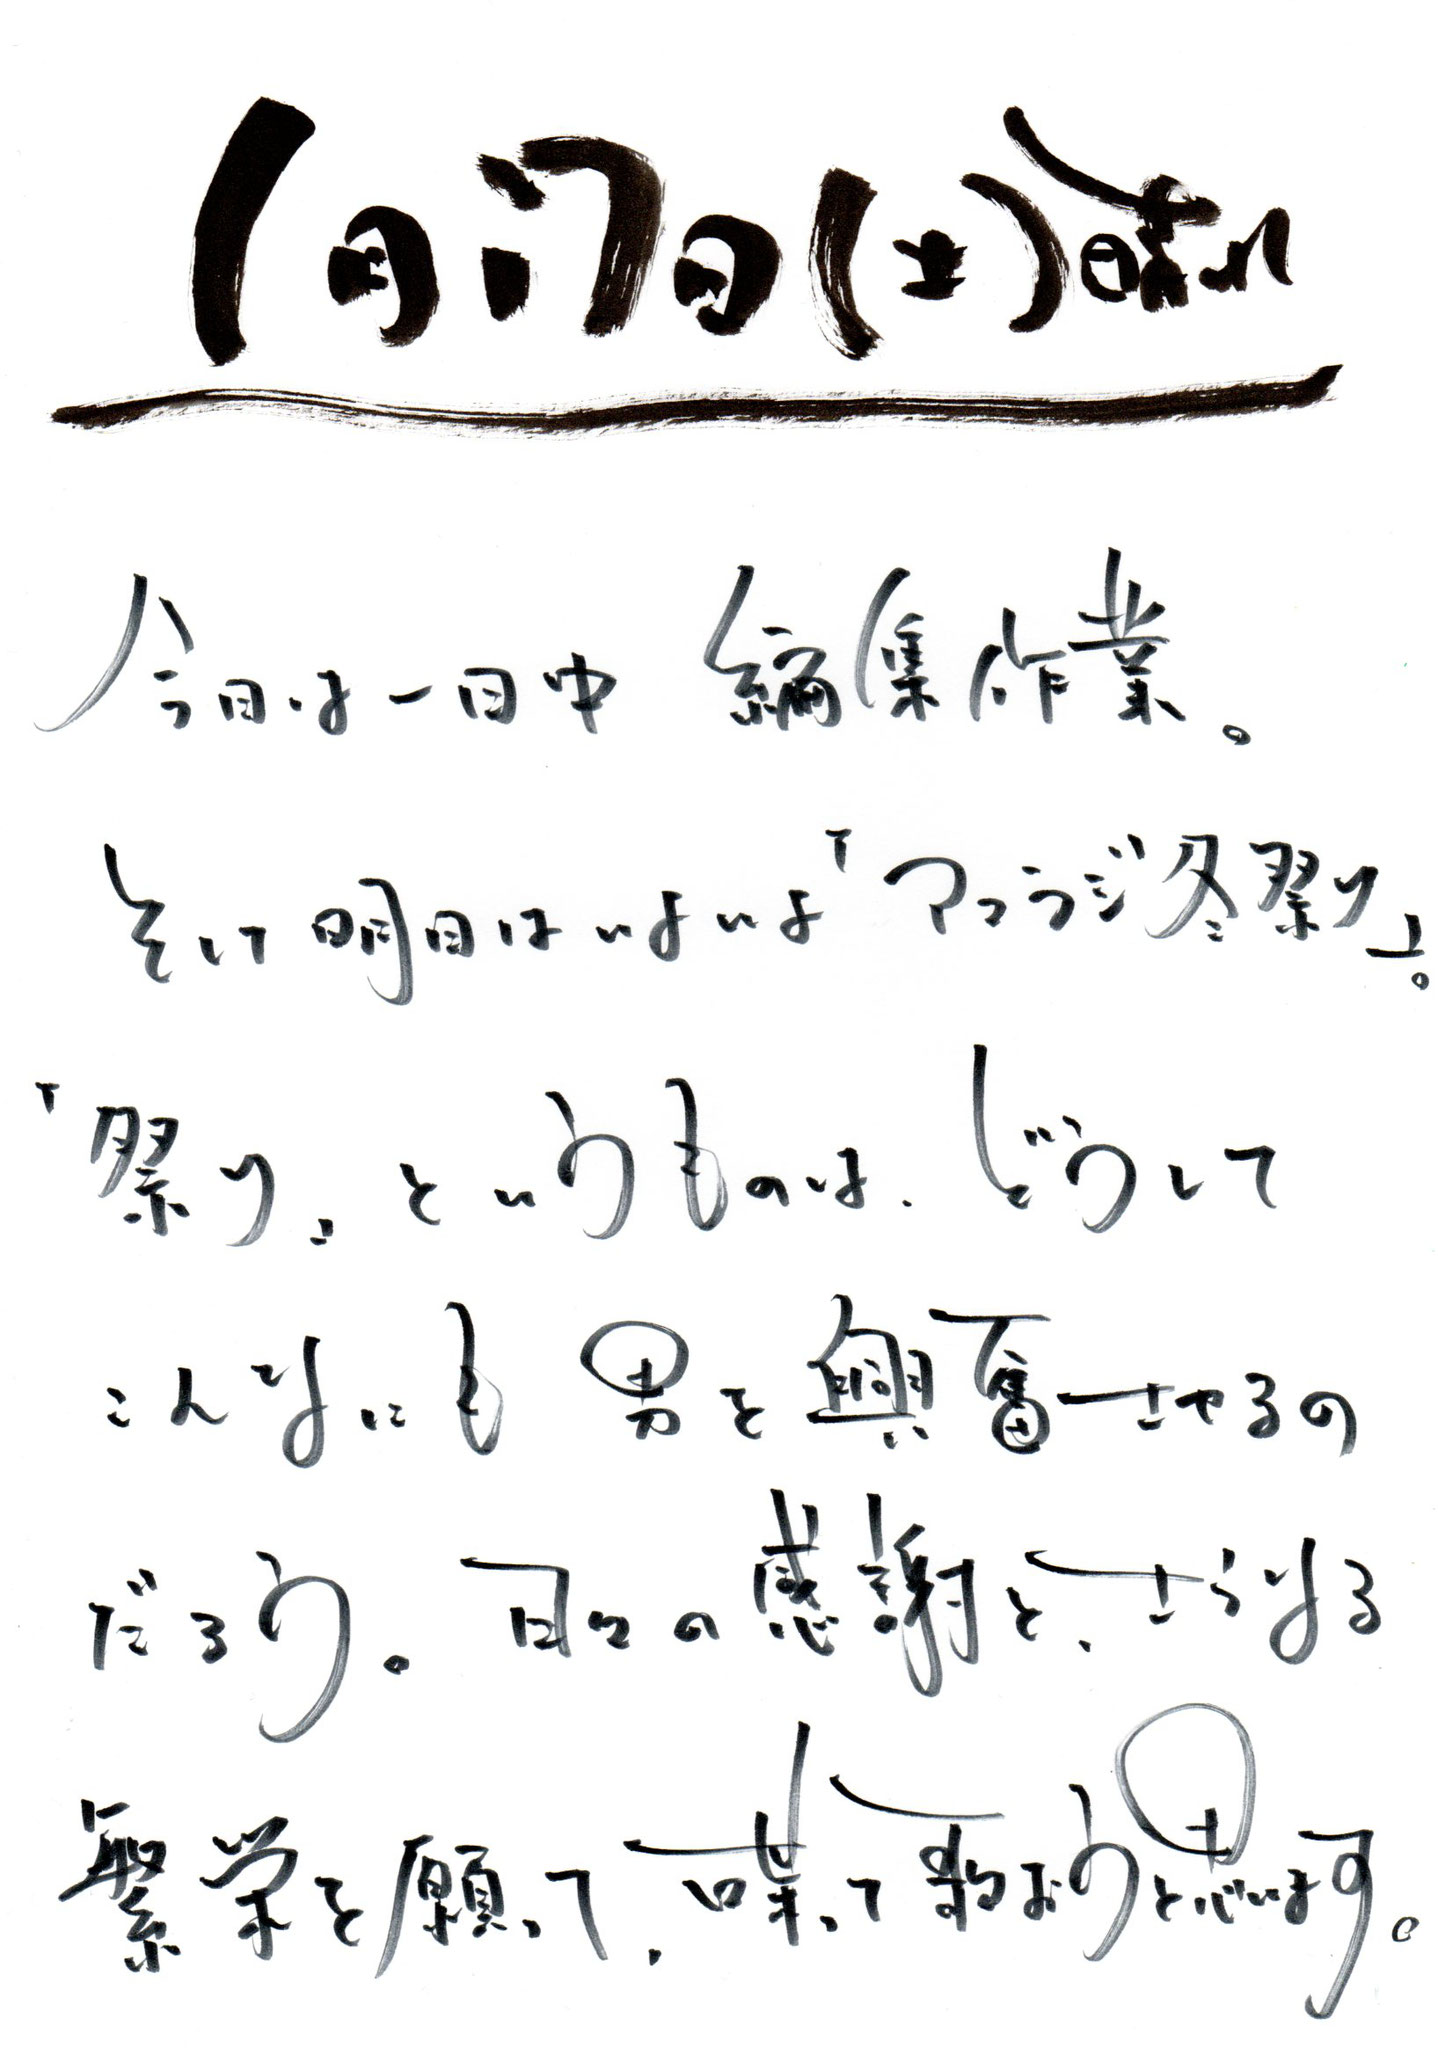 1月17日(土)晴れ
今日は一日中 編集作業。
そして明日はいよいよ「アコラジ冬祭り」。
「祭り」というものは、どうして
こんなにも男を興奮させるの
だろう。日々の感謝と、さらなる
繁栄を願って、喋って歌おうと思います。